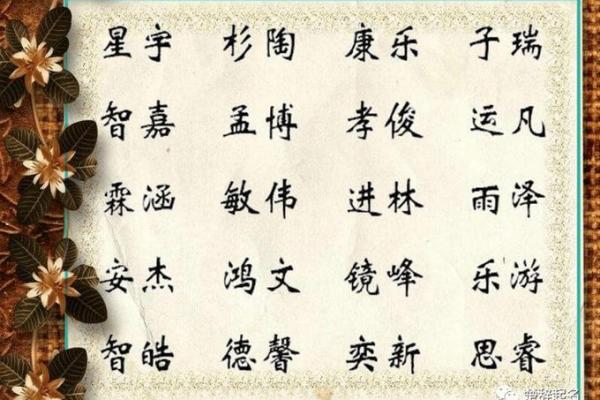 星宇 杉陶 康乐 子瑞
智嘉 孟博 孝俊 运凡
霖涵 敏伟 进林 雨泽
安杰 鸿文 镜峰 乐游
智皓 德馨 奕新 思睿